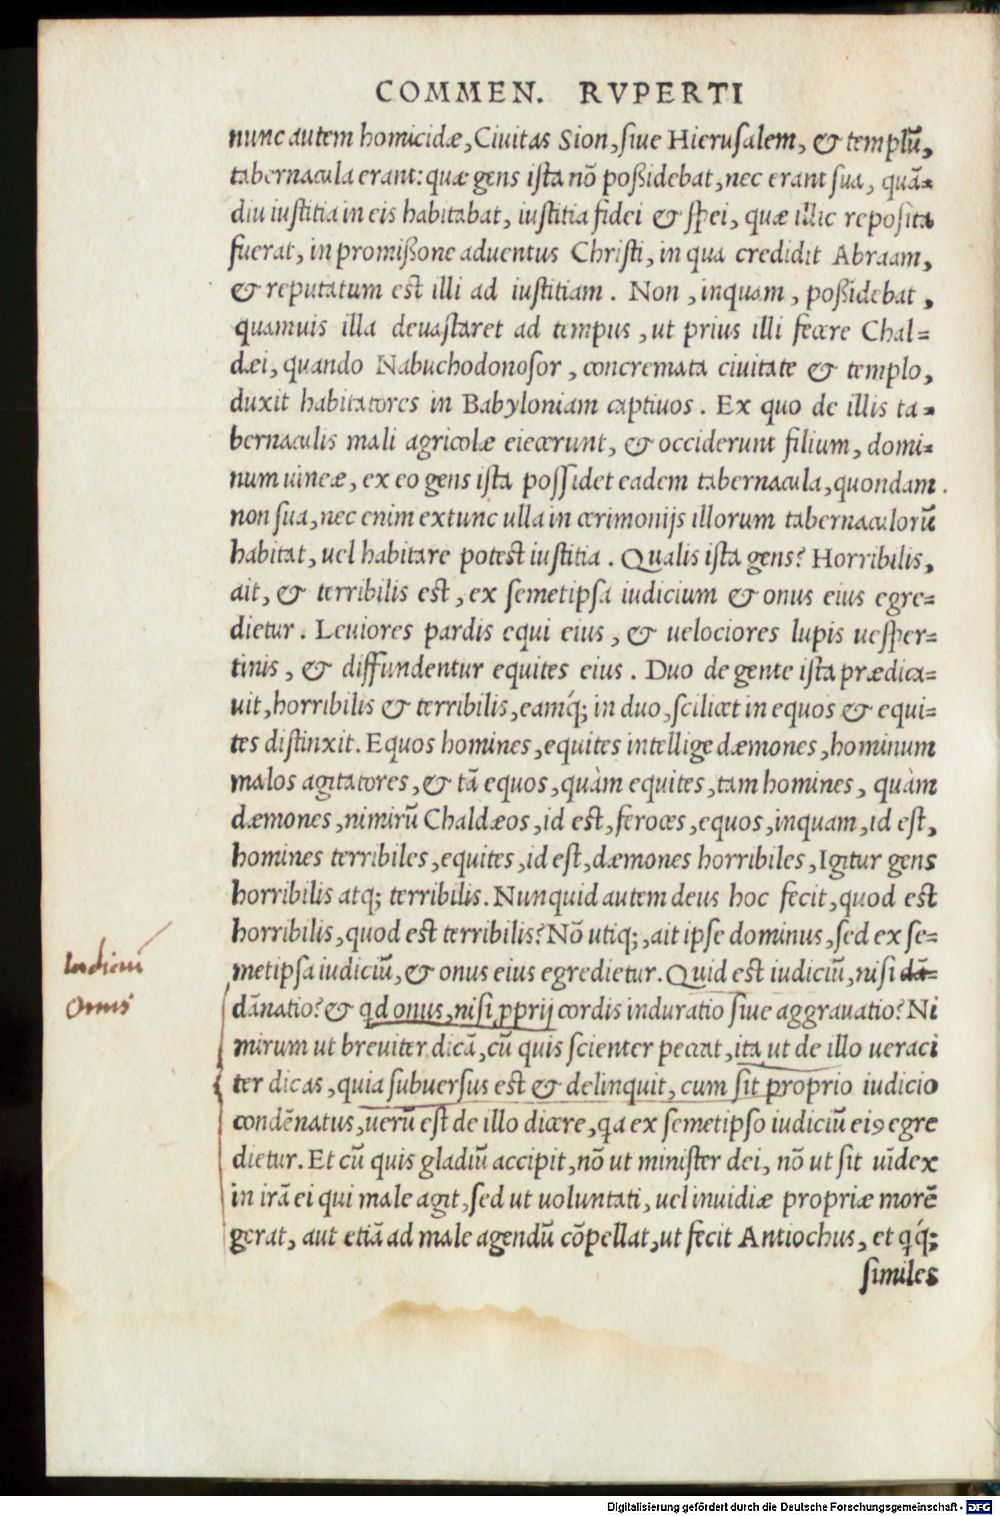 COMMEN. RVPERTI
nunc autem homicidæ, Ciuitas Sion, siue Hierusalem, & templũ,
tabernacula erant: quæ gens ista nõ poßidebat, nec erant sua, quã-
diu iustitia in eis habitabat, iustitia fidei & spei, quæ illic reposita
fuerat, in promißione aduentus Christi, in qua credidit Abraam,
& reputatum est illi ad iustitiam. Non, inquam, poßidebat,
quamuis illa deuastaret ad tempus, ut prius illi fecere Chal=
dæi, quando Nabuchodonosor, concremata ciuitate & templo,
duxit habitatores in Babyloniam captiuos. Ex quo de illis ta=
bernaculis mali agricolæ eiecerunt, & occiderunt filium, domi=
num uineæ, ex eo gens ista possidet eadem tabernacula, quondam.
non sua, nec enim extunc ulla in cerimonijs illorum tabernaculorũ
habitat, uel habitare potest iustitia. Qualis ista gens? Horribilis,
ait, & terribilis est, ex semetipsa iudicium & onus eius egre=
dietur. Leuiores pardis equi eius, & uelociores lupis uesper=
tinis, & diffundentur equites eius. Duo de gente ista prædica=
uit, horribilis & terribilis, eamq́; in duo, scilicet in equos & equi=
tes distinxit. Equos homines, equites intellige dæmones, hominum
malos agitatores, & tã equos, quàm equites, tam homines, quàm
dæmones, nimirũ Chaldæos, id est, feroces, equos, inquam, id est,
homines terribiles, equites, id est, dæmones horribiles, Igitur gens
horribilis atq; terribilis. Nunquid autem deus hoc fecit, quod est
horribilis, quod est terribilis? Nõ utiq;, ait ipse dominus, sed ex se=
metipsa iudiciũ, & onus eius egredietur. Quid est iudiciũ, nisi dã=
dãnatio? & qd onus, nisi ꝓprij cordis induratio siue aggrauatio? Ni
mirum ut breuiter dicã, cũ quis scienter peccat, ita ut de illo ueraci
ter dicas, quia subuersus est & delinquit, cum sit proprio iudicio
condẽnatus, uerũ est de illo dicere, qa ex semetipso iudiciũ eiꝰ egre
dietur. Et cũ quis gladiũ accipit, nõ ut minister dei, nõ ut sit uĩdex
in irã ei qui male agit, sed ut uoluntati, uel inuidiæ propriæ morẽ
gerat, aut etiã ad male agendũ cõpellat, ut fecit Antiochus, et qq́;
similes
Iudiciũ
Onus
Digitalisierung gefördert durch die Deutsche Forschungsgemeinschaft - DFG